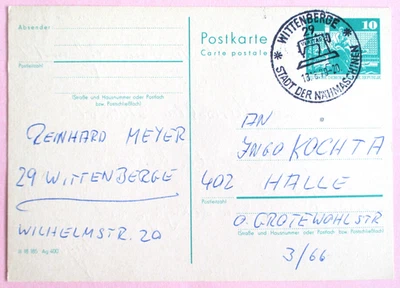 Absender
Postkarte
Carte postale
WITTENBERGE
29
STADT DER NÄHMASCHINEN
10
Postleitzahl
(Straße und Hausnummer oder Postfach
bzw. Postschließfach)
REINHARD MEYER
29 WITTENBERGE
WILHELMSTR. 20
AN
INGO KOCHTA
402 HALLE
Postleitzahl
O. GROTEWOHLSTR
(Straße und Hausnummer oder Postfach bzw. Postschließfach)
3/66